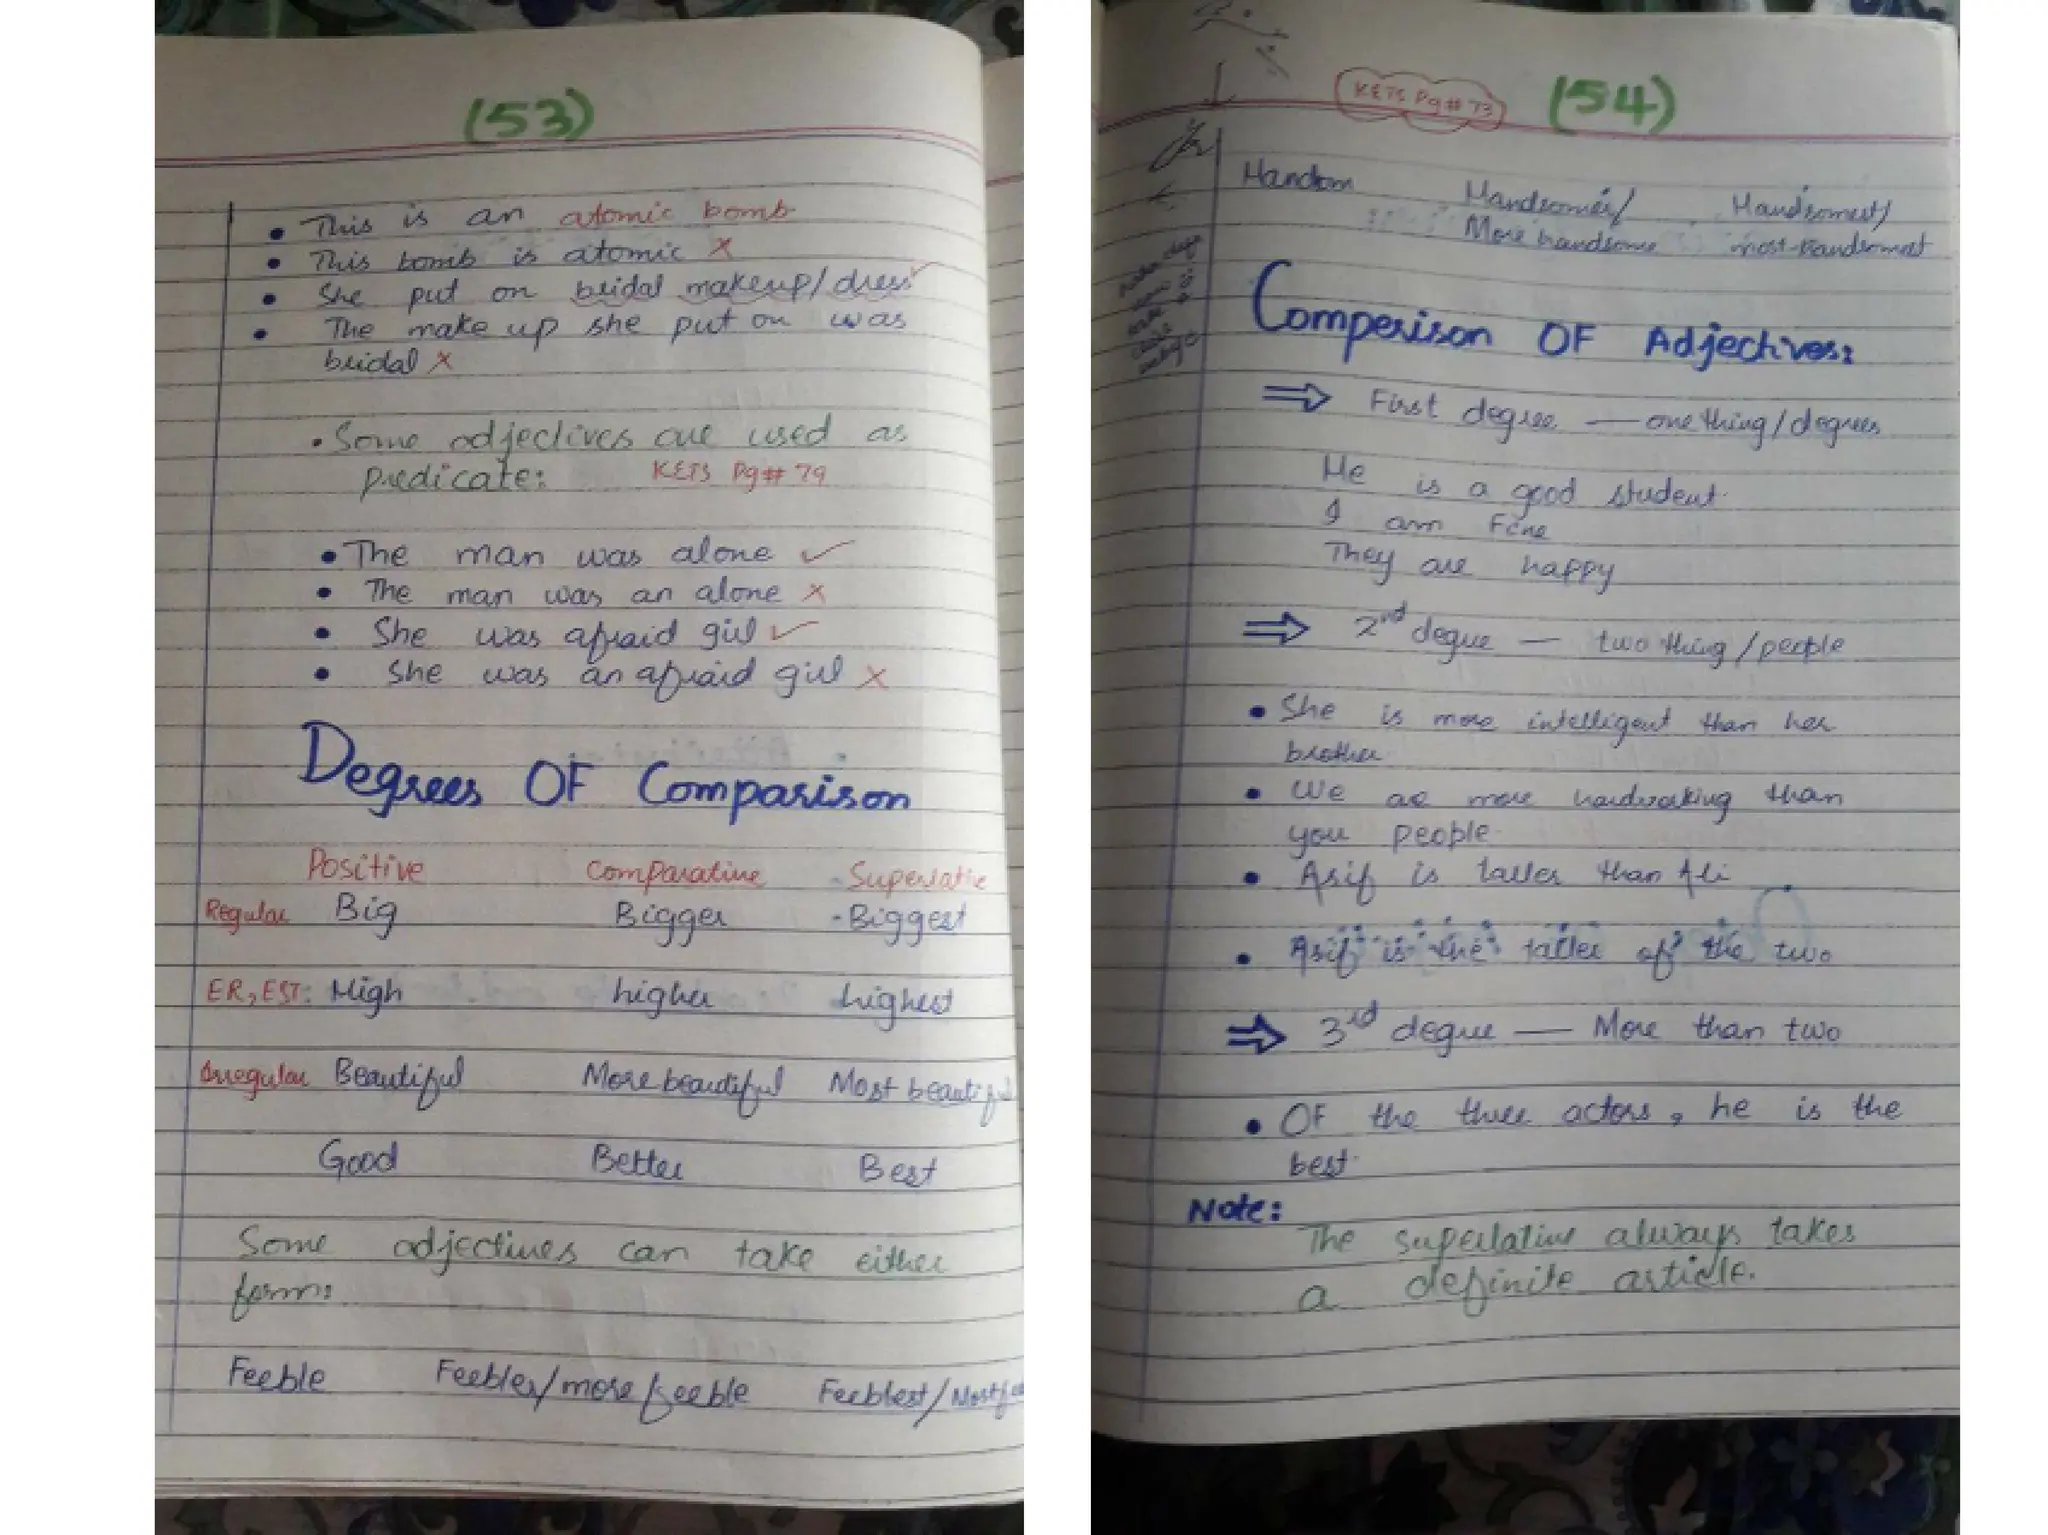 (53)
• This is an atomic bomb
• This bomb is atomic ×
• She put on bridal makeup/dress ✓
• The make up she put on was
bridal ×
• Some adjectives are used as
predicate: KETS Pg# 79
• The man was alone ✓
• The man was an alone ×
• She was afraid girl ✓
• She was an afraid girl ×
Degrees OF Comparison
Positive Comparative Superlative
Regular Big Bigger - Biggest
ER, EST: High higher highest
Irregular Beautiful More beautiful Most beautiful
Good Better Best
Some adjectives can take either
form:
Feeble Feebler/more feeble Feeblest/Most
KETS Pg# 73 (54)
Handsom Handsomer/ Handsomest/
More handsome most handsomest
Comperison OF Adjectives:
⇒ First degree — one thing/degrees
He is a good student.
I am Fine
They are happy
⇒ 2nd degree — two thing/people
• She is more intelligent than her
brother.
• We are more hardworking than
you people.
• Asif is taller than Ali
• Asif is the taller of the two
⇒ 3rd degree — More than two
• OF the three actors, he is the
best.
Note:
The superlative always takes
a definite article.